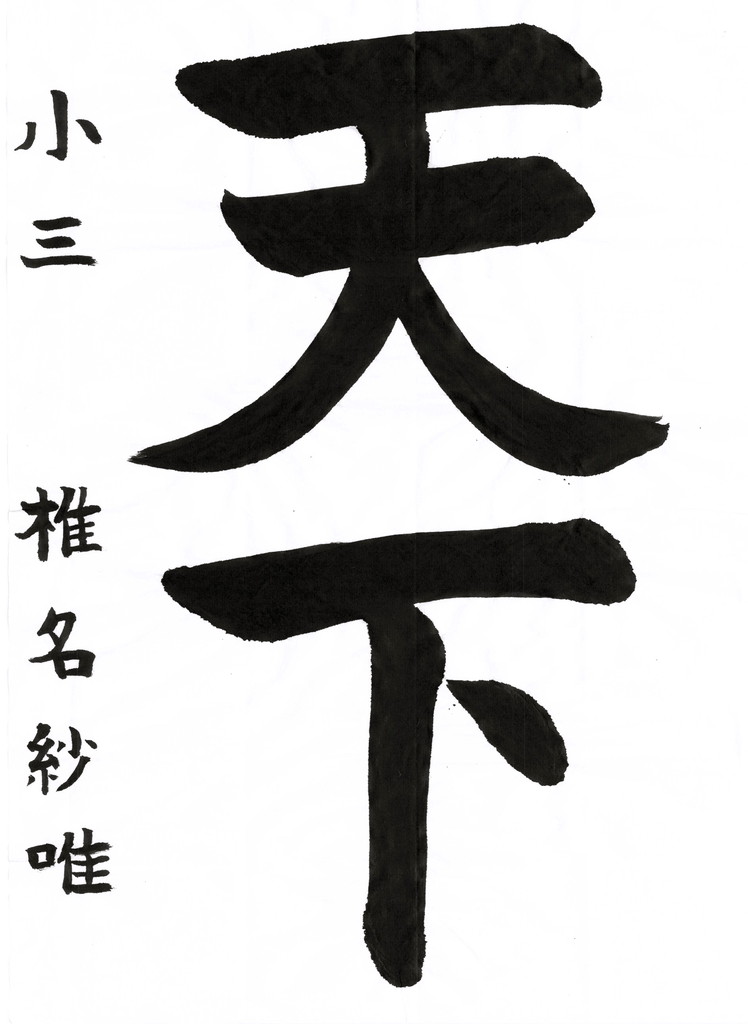 天下
小三 椎名紗唯